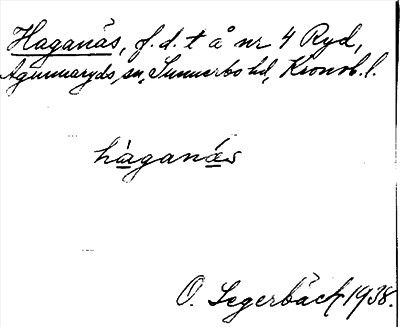 Haganäs, f.d. t å nr 4 Ryd,
Agunnaryds sn, Sunnerbo hd, Kronob. l.
hàganǽs
O. Segerbäck 1938.